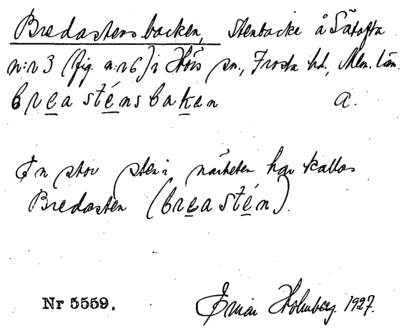 Bredastensbacken, stenbacke å Sätofta
n:r 3 (fig. n:r 6) i Hörs sn, Frosta hd, Mlm. län.
breasténsbaken a.
En stor sten i närheten har kallas
Bredasten (breastén).
Nr 5559. Ernar Holmberg 1927.